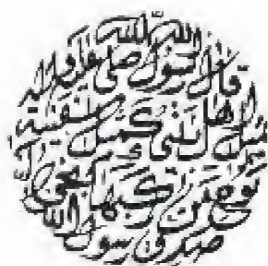 الله الله
قال رسول صلى عليه واله
مثل اهل بيتي كمثل سفينة
نوح من ركبها نجى
صدق رسول الله